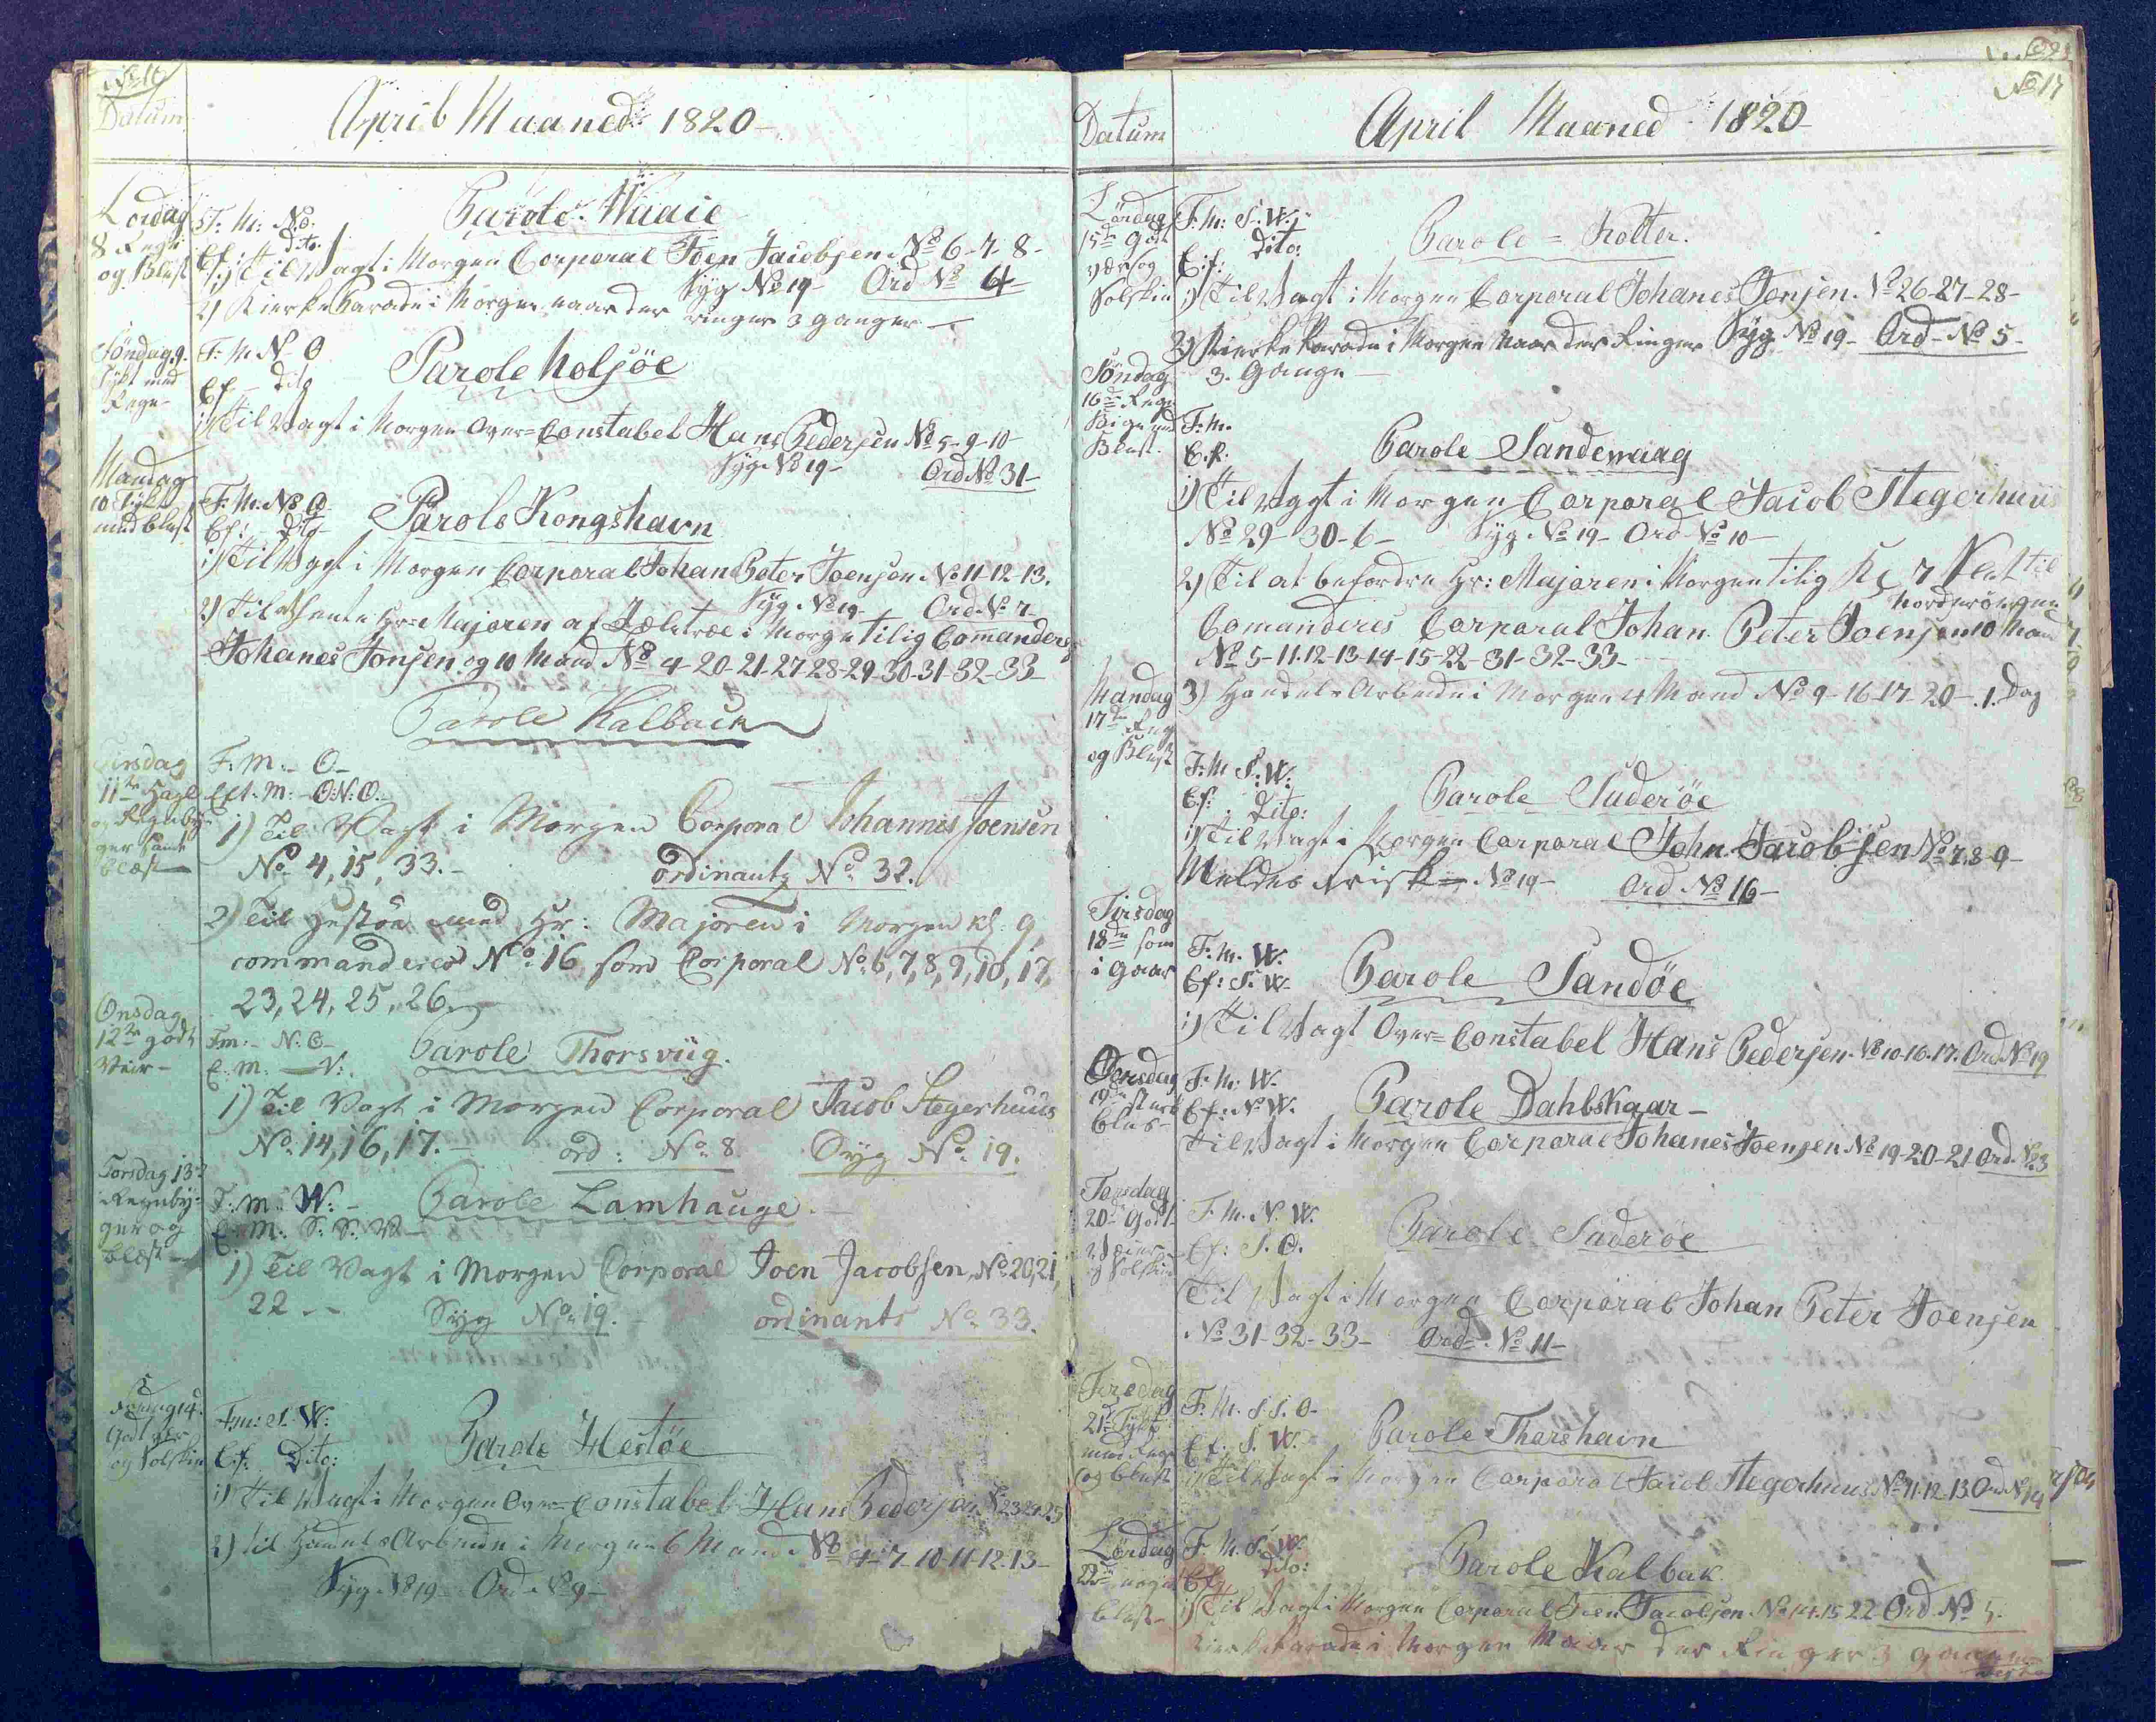 No 16
Datum
April Maaned 1820
Lördag
8 Regn
og Blæst
F: M: N.O.
Ef: dito.
Parole
1) Til Vagt i Morgen Corporal Joen Jacobsen No 6-7-8-
Syg No 19- Ord No 4
2) Kierke Parade i Morgen naar der ringer 3 ganger
Söndag 9.
Tykt med
Regn-
F: M N-O
Ef - dito
Parole Holsöe
1) Til Vagt i Morgen Over=Constabel Hans Pedersen No 5-9-10
Syg No 19- Ord No 31-
Mandag
10 Tykt
med blæst
F: M: N: O
Ef: dito
Parole Kongshavn
1) Til Vagt i Morgen Corporal Johan Peter Joensen No 11-12-13.
Syg No 19- Ord No 7-
2) Til at hente Hr: Majoren af i Morgen tilig Comanderes
Johanes Jonsen og 10 Mand No 4-20-21-27-28-29-30-31-32-33
Parole Kalback
Tirsdag
11te Hagl
og Regnby=
ger samt
blæst
F: M:- O-
Eft. M:- O.N.O.-
1) Til Vagt i Morgen Corporal Johannis Joensen
No 4, 15, 33.- ordinantz No 32.
2) Til Hestöe med Hr: Majoren i Morgen Kl: 9,
commanderes No 16 som Corporal No 6, 7, 8, 9, 10, 17,
23, 24, 25, 26.
Onsdag
12te godt
Veir-
Fm:- N: O-
E: m. - N:.
Parole Thorsviig.
1) Til Vagt i Morgen Corporal Jacob Stegerhuus
No 14, 16, 17.- ord: No 8 Syg No 19.
Torsdag 13de
Regnby=
ger og
blæst
F: M: W:-
E: M: S.S.W-
Parole Lamhauge.-
1) Til Vagt i Morgen Corporal Joen Jacobsen, No 20, 21,
22 -- Syg No 19.- ordinants No 33.
Fredag 14.
Godt vær
og Solskin
Fm: S. W:
Ef: Dito:
Parole Hestöe
1) Til Vagt i Morgen Over=Constabel Hans Pedersen No 23 24 25
2) Til Handels Arbeide i Morgen 6 Mand No 4-7-10-11-12-13-
Syg No 19 Ord No 9-
No 17
Datum
April Maaned 1820
Lördag
15de Godt
vær og
Solskin
F: M: S: W:
E: f: Dito:
Parole = Kolter.
1) Til Vagt i Morgen Corporal Johanes Jonsen. No 26-27-28-
2) Kierke Parade i Morgen Naar der Ringer Syg No 19- Ord- No 5-
3. Gange
Söndag
16de Regn
Blæst.
F: M.
E. f.
Parole Sandevaag
1) Til Vagt i Morgen Corporal Jacob Stegerhuus
No 29-30-6- Syg No 19- Ord No 10-
2) Til at befordre Hr: Majoren i Morgen tilig Kl 7 Slet til
Norderöerne
Comanderes Corporal Johan Peter Joensen 10 Mand
No 5-11-12-13-14-15-22-31-32-33-
3) Handels Arbeide i Morgen 4 Mand No 9-16-17-20-.1. Dag
Mandag
17de Regn
og Blæst
F: M S: W:
Ef: Dito:
Parole Suderöe
1) Til Vagt i Morgen Corporal John Jacobsen No 7.8-9-
Meldes Frisk No 19- Ord No 16-
Tirsdag
18de som
i gaar
F: M. W.
Ef: S. W-
Parole Sandöe
1) Til Vagt Over=Constabel Hans Pedersen. No 10-16-17. Ord No 19
Onsdag
19de
blæs-
F: M: W-
Ef: N. W.
Parole Dahlskgaar-
Til Vagt i Morgen Corporal Johanes Joensen No 19-20-21 Ord No 23
Torsdag
20de Godt
Veier
og Solskin
F: M. N. W.
Ef: S. O.
Parole Suderöe
Til Vagt i Morgen Corporal Johan Peter Joensen
No 31-32-33- Ord- No 11-
Fredag
21de Tykt
med Regn
og blæst
F: M. S.S. O-
Ef. S. W.
Parole Thorshavn
1) Til Vagt i Morgen Corporal Jacob Stegerhuus No 11-12-13 Ord No 14
Lördag
22de
blæst-
F: M. S. W.
Ef: dito:
Parole Kalbak
1) Til Vagt i Morgen Corporal Joen Jacobsen. No 14.15 22 Ord No 5.
Kierke Parade i Morgen Naar der Ringer 3 gange